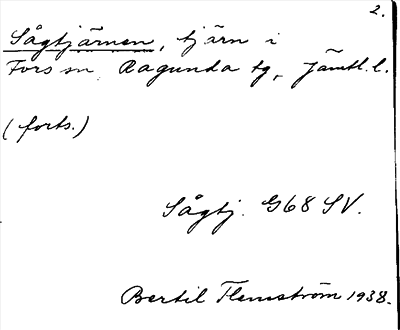 2.
Sågtjärnen, tjärn i
Fors sn, Ragunda tg, Jämtl. l.
(forts.)
Sågtj. G68 SV.
Bertil Flemström 1938.